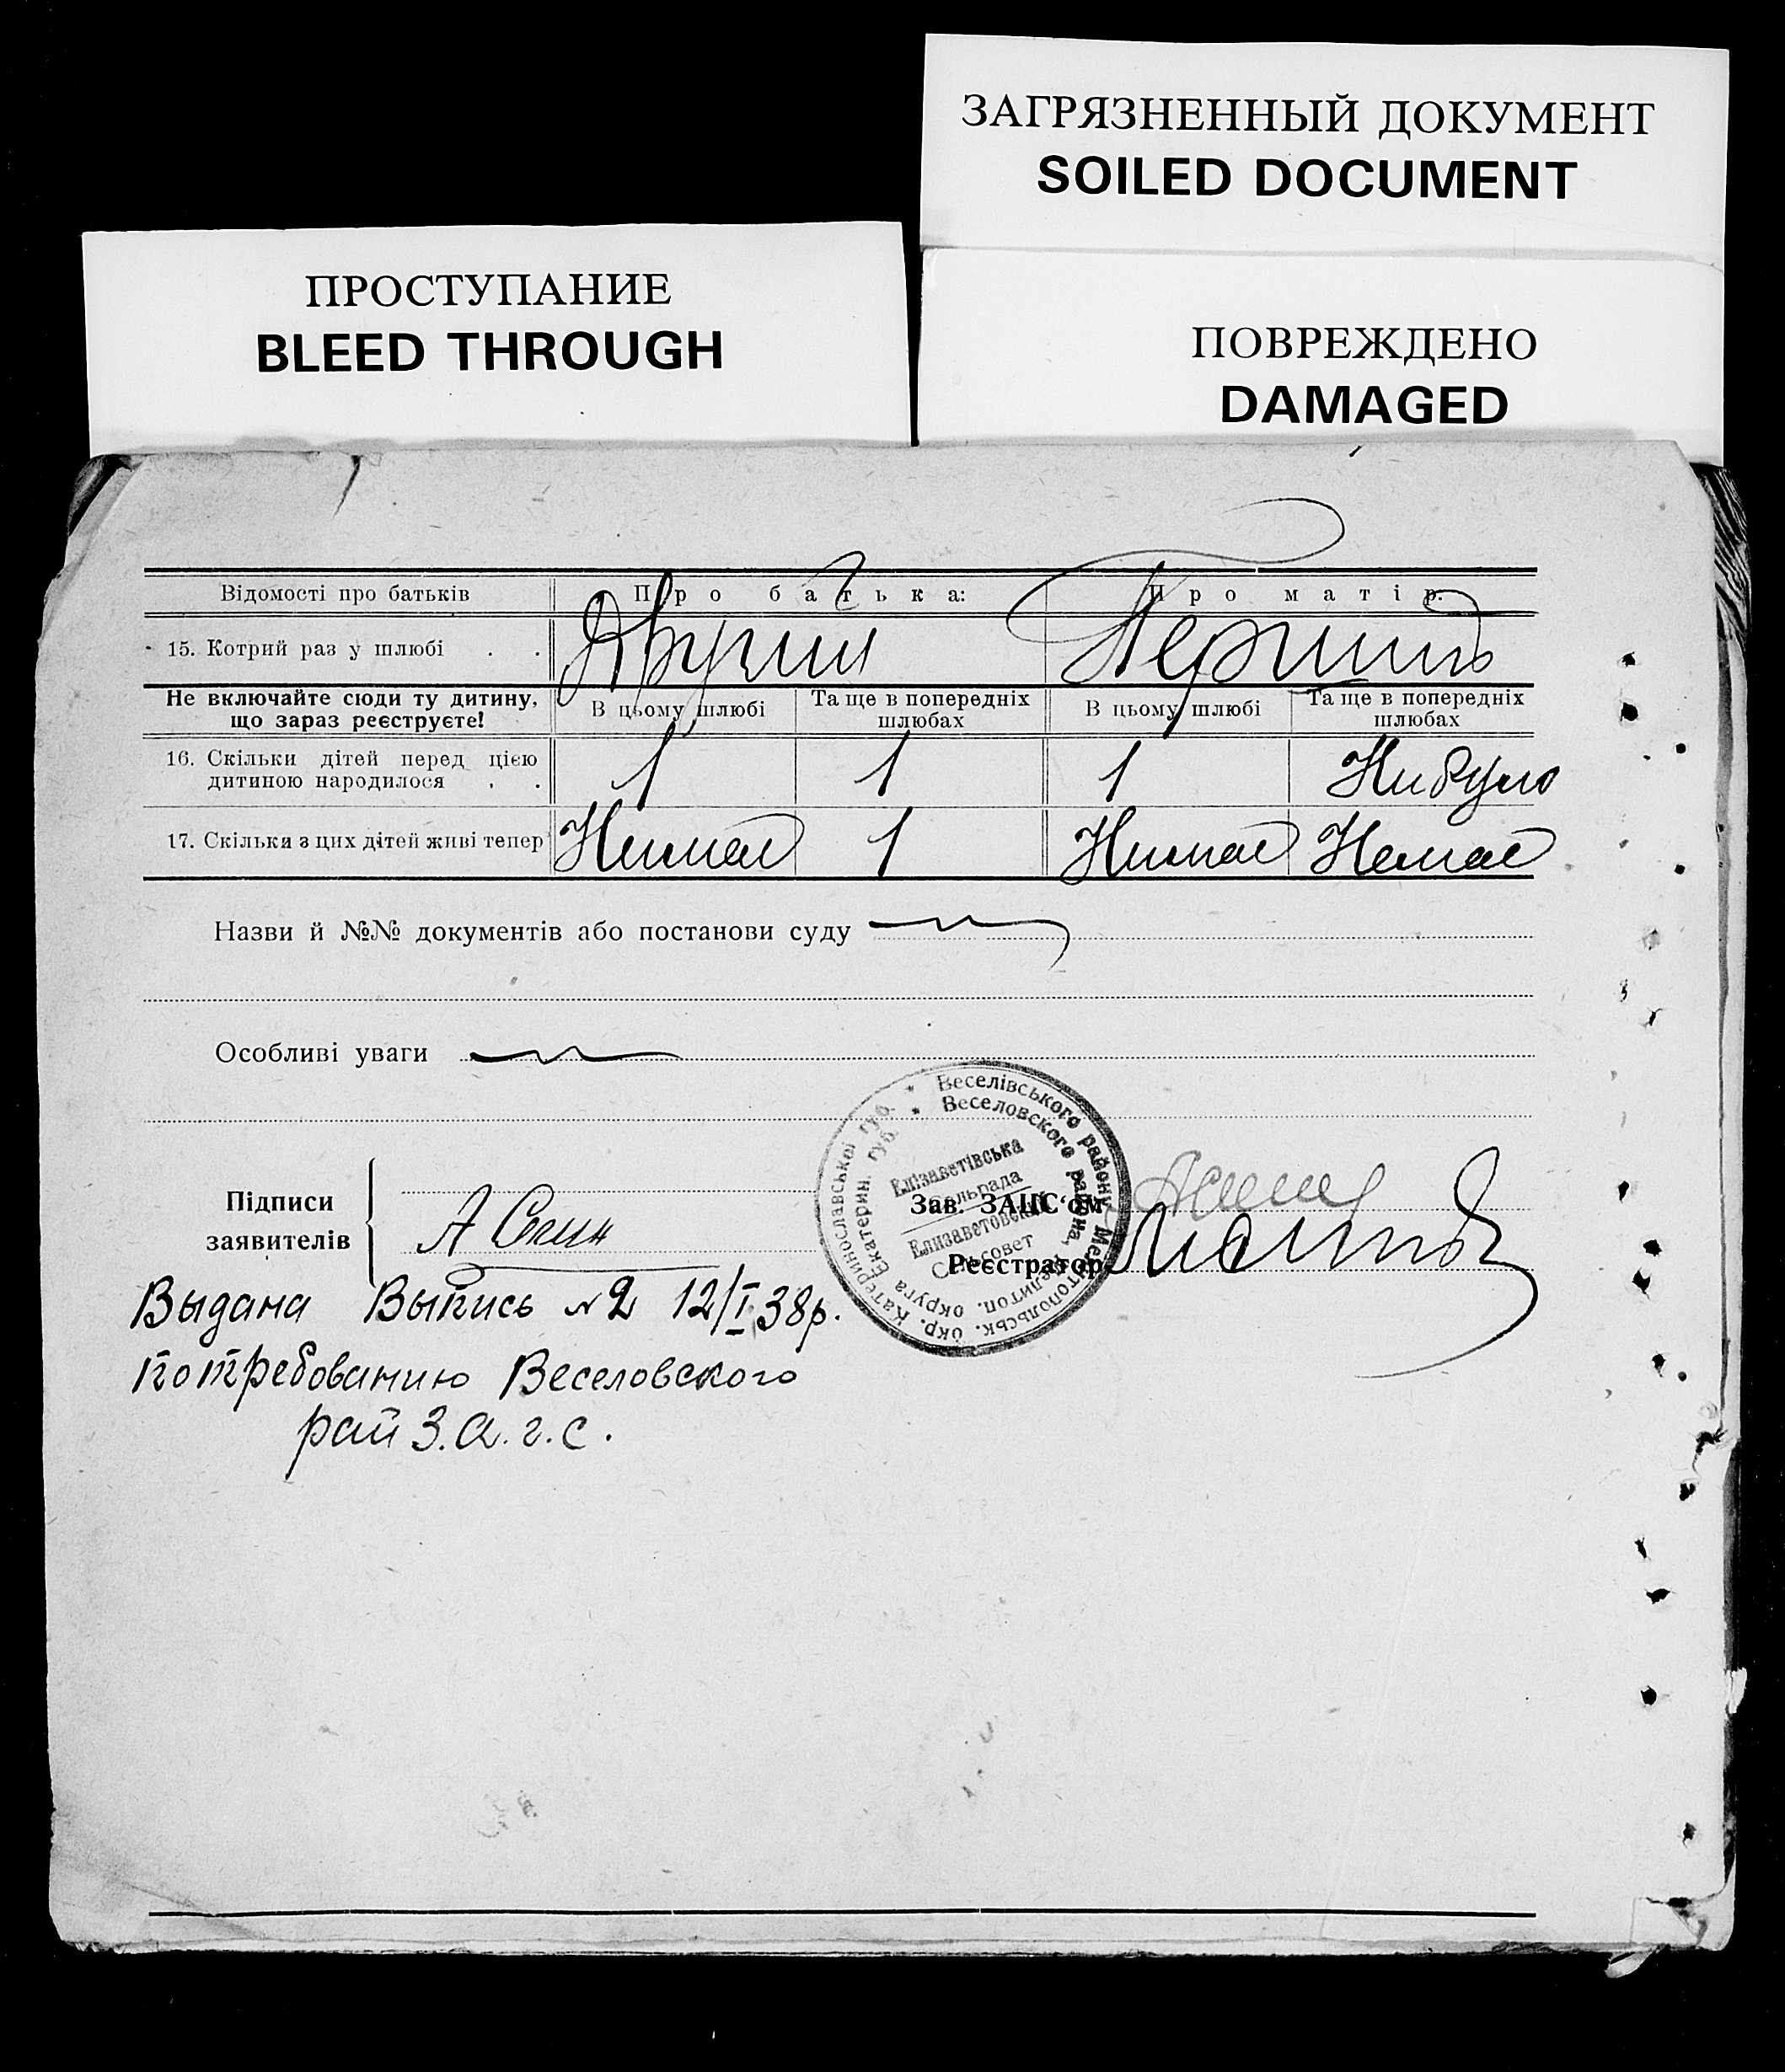 ЗАГРЯЗНЕННЫЙ ДОКУМЕНТ
SOILED DOCUMENT
ПРОСТУПАНИЕ
BLEED THROUGH
ПОВРЕЖДЕНО
DAMAGED
Відомості про батьків Про батька: Про матір:
15. Котрий раз у шлюбі . . Другий Перший
Не включайте сюди ту дитину, що зараз реєструєте! В цьому шлюбі Та ще в попередніх шлюбах В цьому шлюбі Та ще в попередніх шлюбах
16. Скільки дітей перед цією
дитиною народилося . . 1 1 1 Ни було
17. Скільки з цих дітей живі тепер Нимає 1 Нимає Немає
Назви й №№ документів або постанови суду
Особливі уваги
Підписи
заявителів
Зав. ЗАЦС‘ом
Реєстратор
Веселівського району, Мелітопольськ. окр. Катеринославської губ.
Веселовского района, Мелитоп. округа Екатерин. губ.
Елізаветівська
Сельрада
Елизаветовский
Сельсовет
Выдана Выпись №2 12/I 38р.
по требованию Веселовского
рай З.а.г.с.